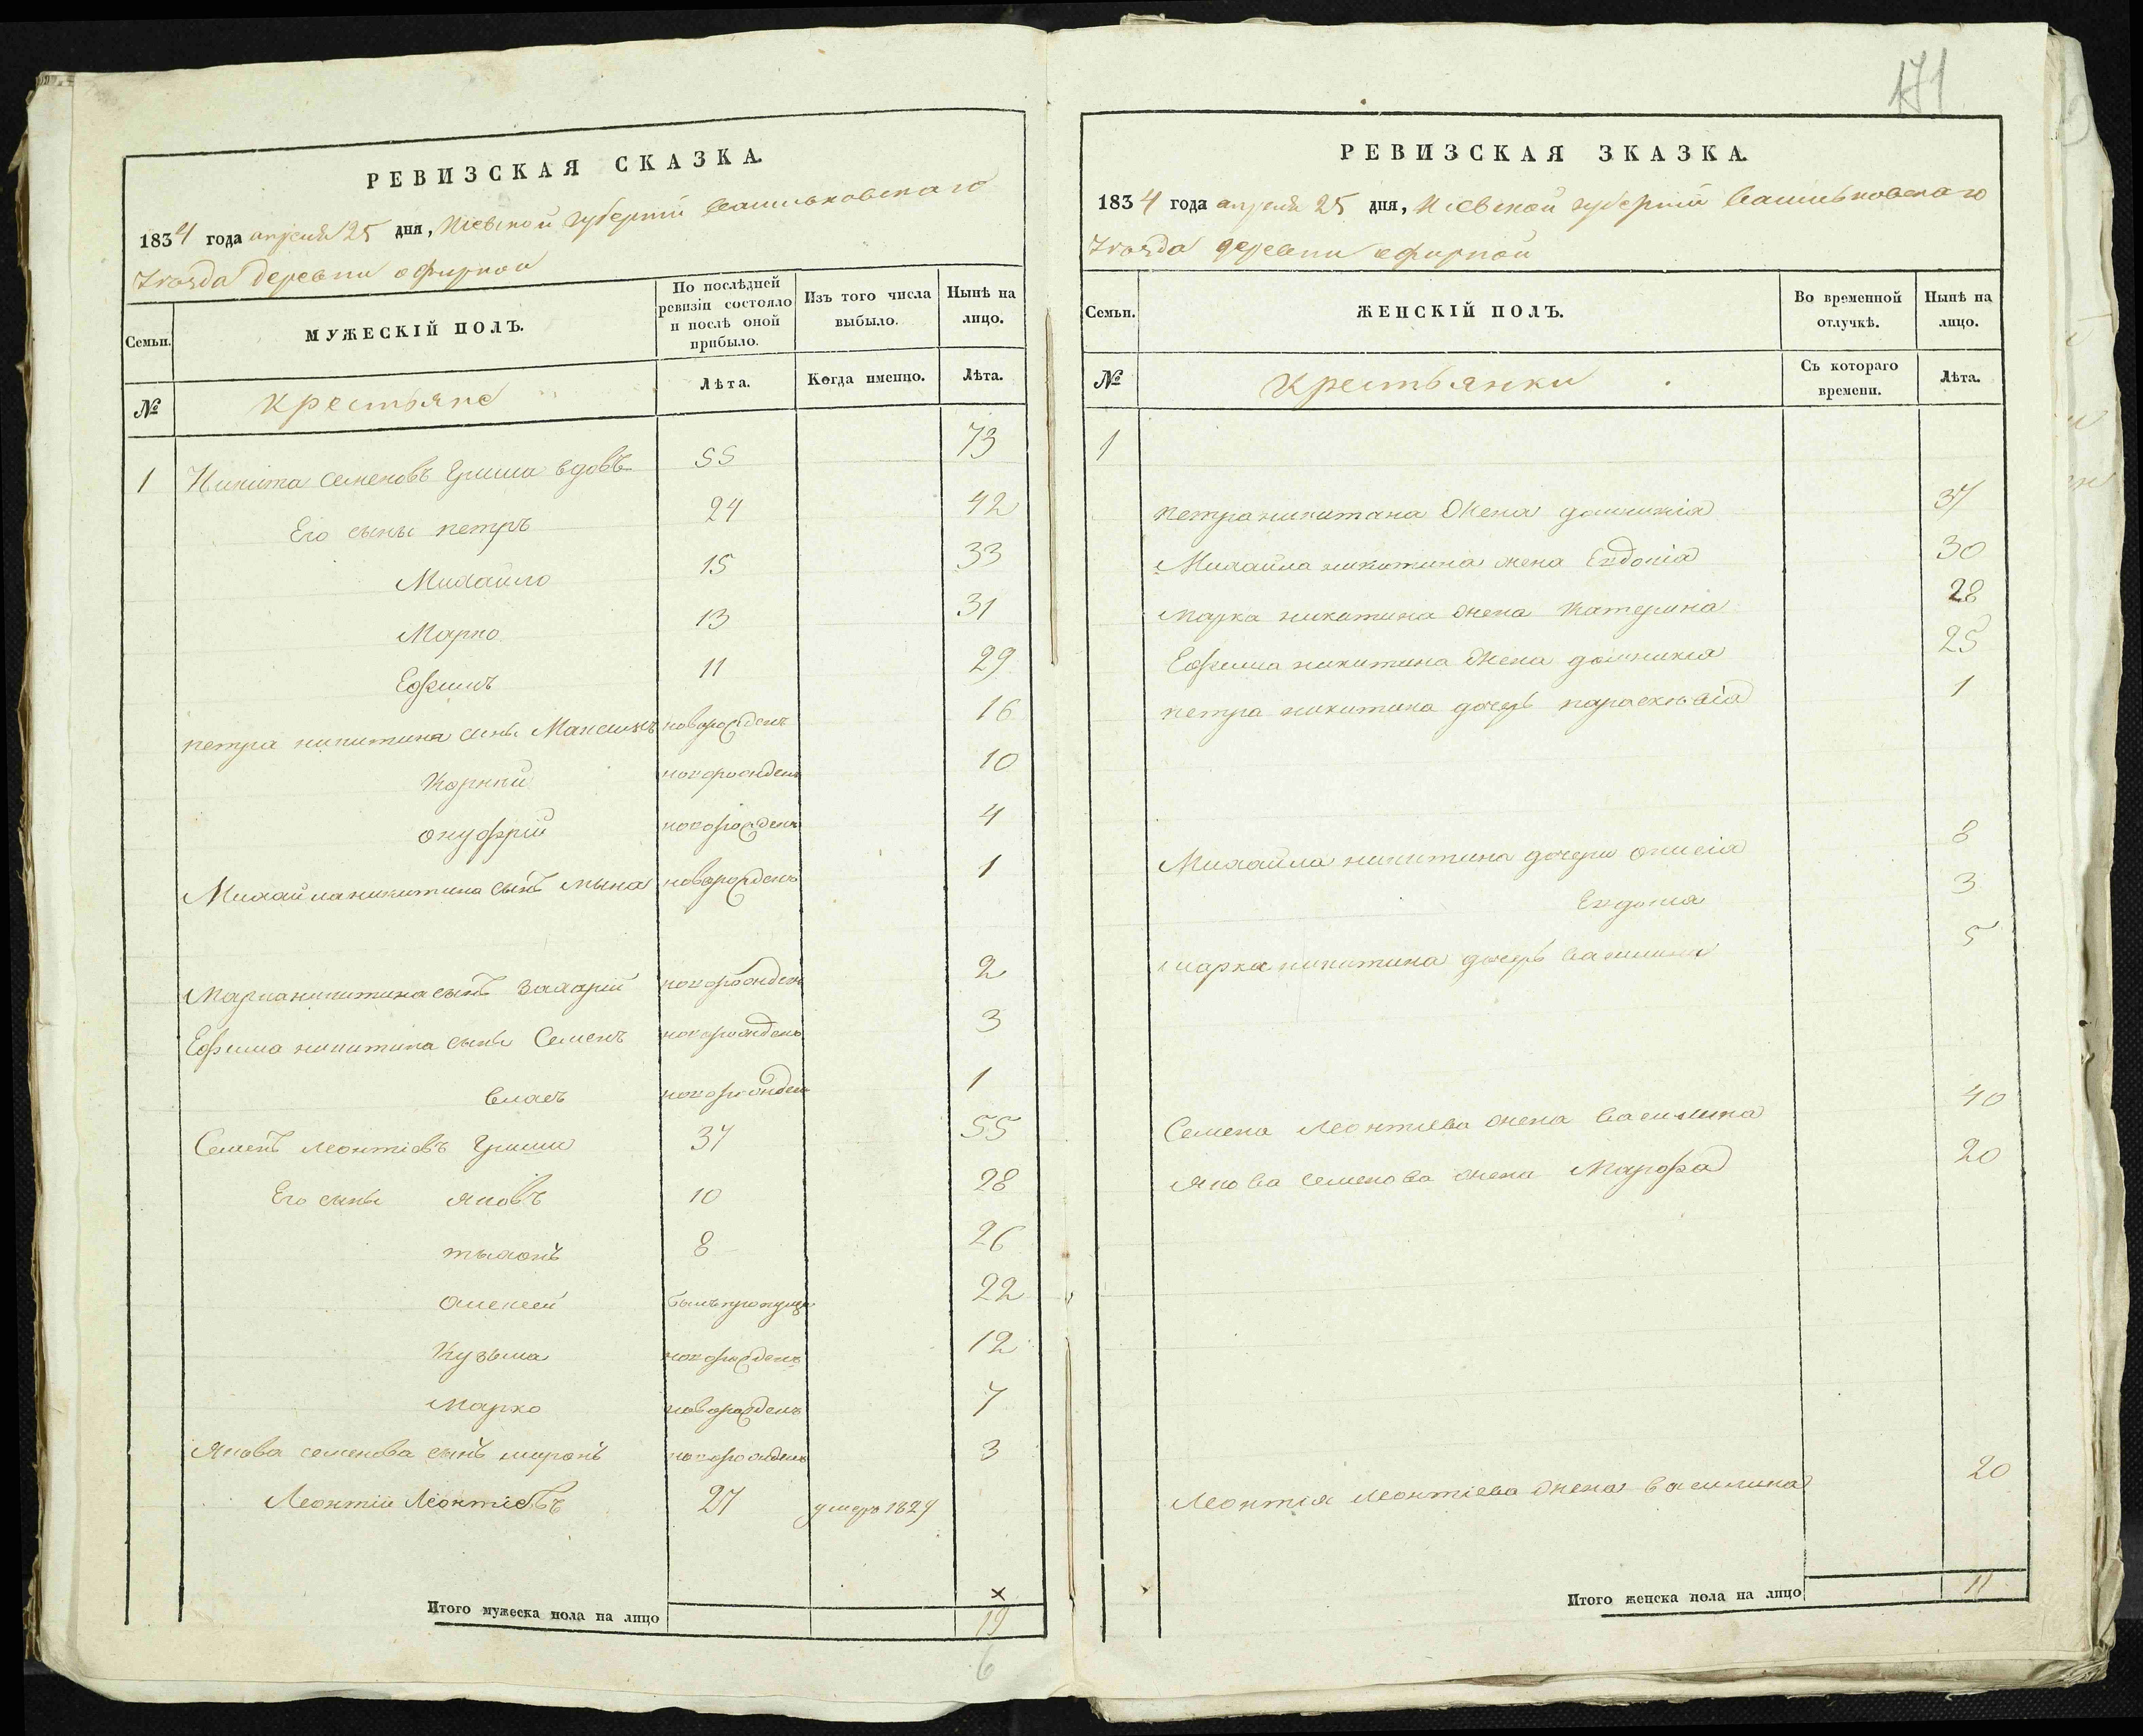 РЕВИЗСКАЯ СКАЗКА.
1834 года апреля 25 дня, Киевской губернии Васильковского
Уезда деревни офирной
Семьи.
МУЖЕСКІЙ ПОЛЪ.
По послѣдней ревизіи состояло и послѣ оной прибыло.
Изъ того числа выбыло.
Нынѣ на лицо.
№
крестьяне
Лѣта.
Когда именно.
Лѣта.
1 Никита Семеновъ Гриша вдовъ 55 73
Его сыны петръ 24 42
Михайло 15 33
Марко 13 31
Ефимъ 11 29
петра никитина сины Максимъ новорожденъ 16
Корний новорожденъ 10
онуфрій новорожденъ 4
Михайла никитина сынъ мына новорожденъ 1
Марка никитина сынъ Захарий новорожденъ 2
Ефима никитина сыны Семенъ новорожденъ 3
власъ новорожденъ 1
Семенъ Леонтіевъ Гриша 37 55
Его сыны яковъ 10 28
тихонъ 8 26
олексей былъ пропущенъ 22
Кузьма новорожденъ 12
Марко новорожденъ 7
Якова семенова сынъ миронъ новорожденъ 3
Леонтій Леонтіевъ 27 умеръ 1829
Итого мужеска пола на лицо
×
19
6
171
РЕВИЗСКАЯ ЗКАЗКА.
1834 года апреля 25 дня, Киевской губерніи Васильковскаго
Уезда деревни офирной
Семьи.
ЖЕНСКІЙ ПОЛЪ.
Во временной отлучкѣ.
Нынѣ на лицо.
№
Крестьянки
Съ котораго времени.
Лѣта.
1
петра никитина жена домникія 37
Михайла никитина жена Евдокія 30
Марка никитина жена Катерина 28
Ефима никитина жена домникія 25
петра никитина дочерь параскѣвія 1
Михайла никитина дочери 8
Евдокия 3
марка никитина дочерь василина 5
Семена Леонтіева жена Василина 40
Якова Семенова жена Марфа 20
Леонтія Леонтіева жена василина 20
Итого женска пола на лицо 11